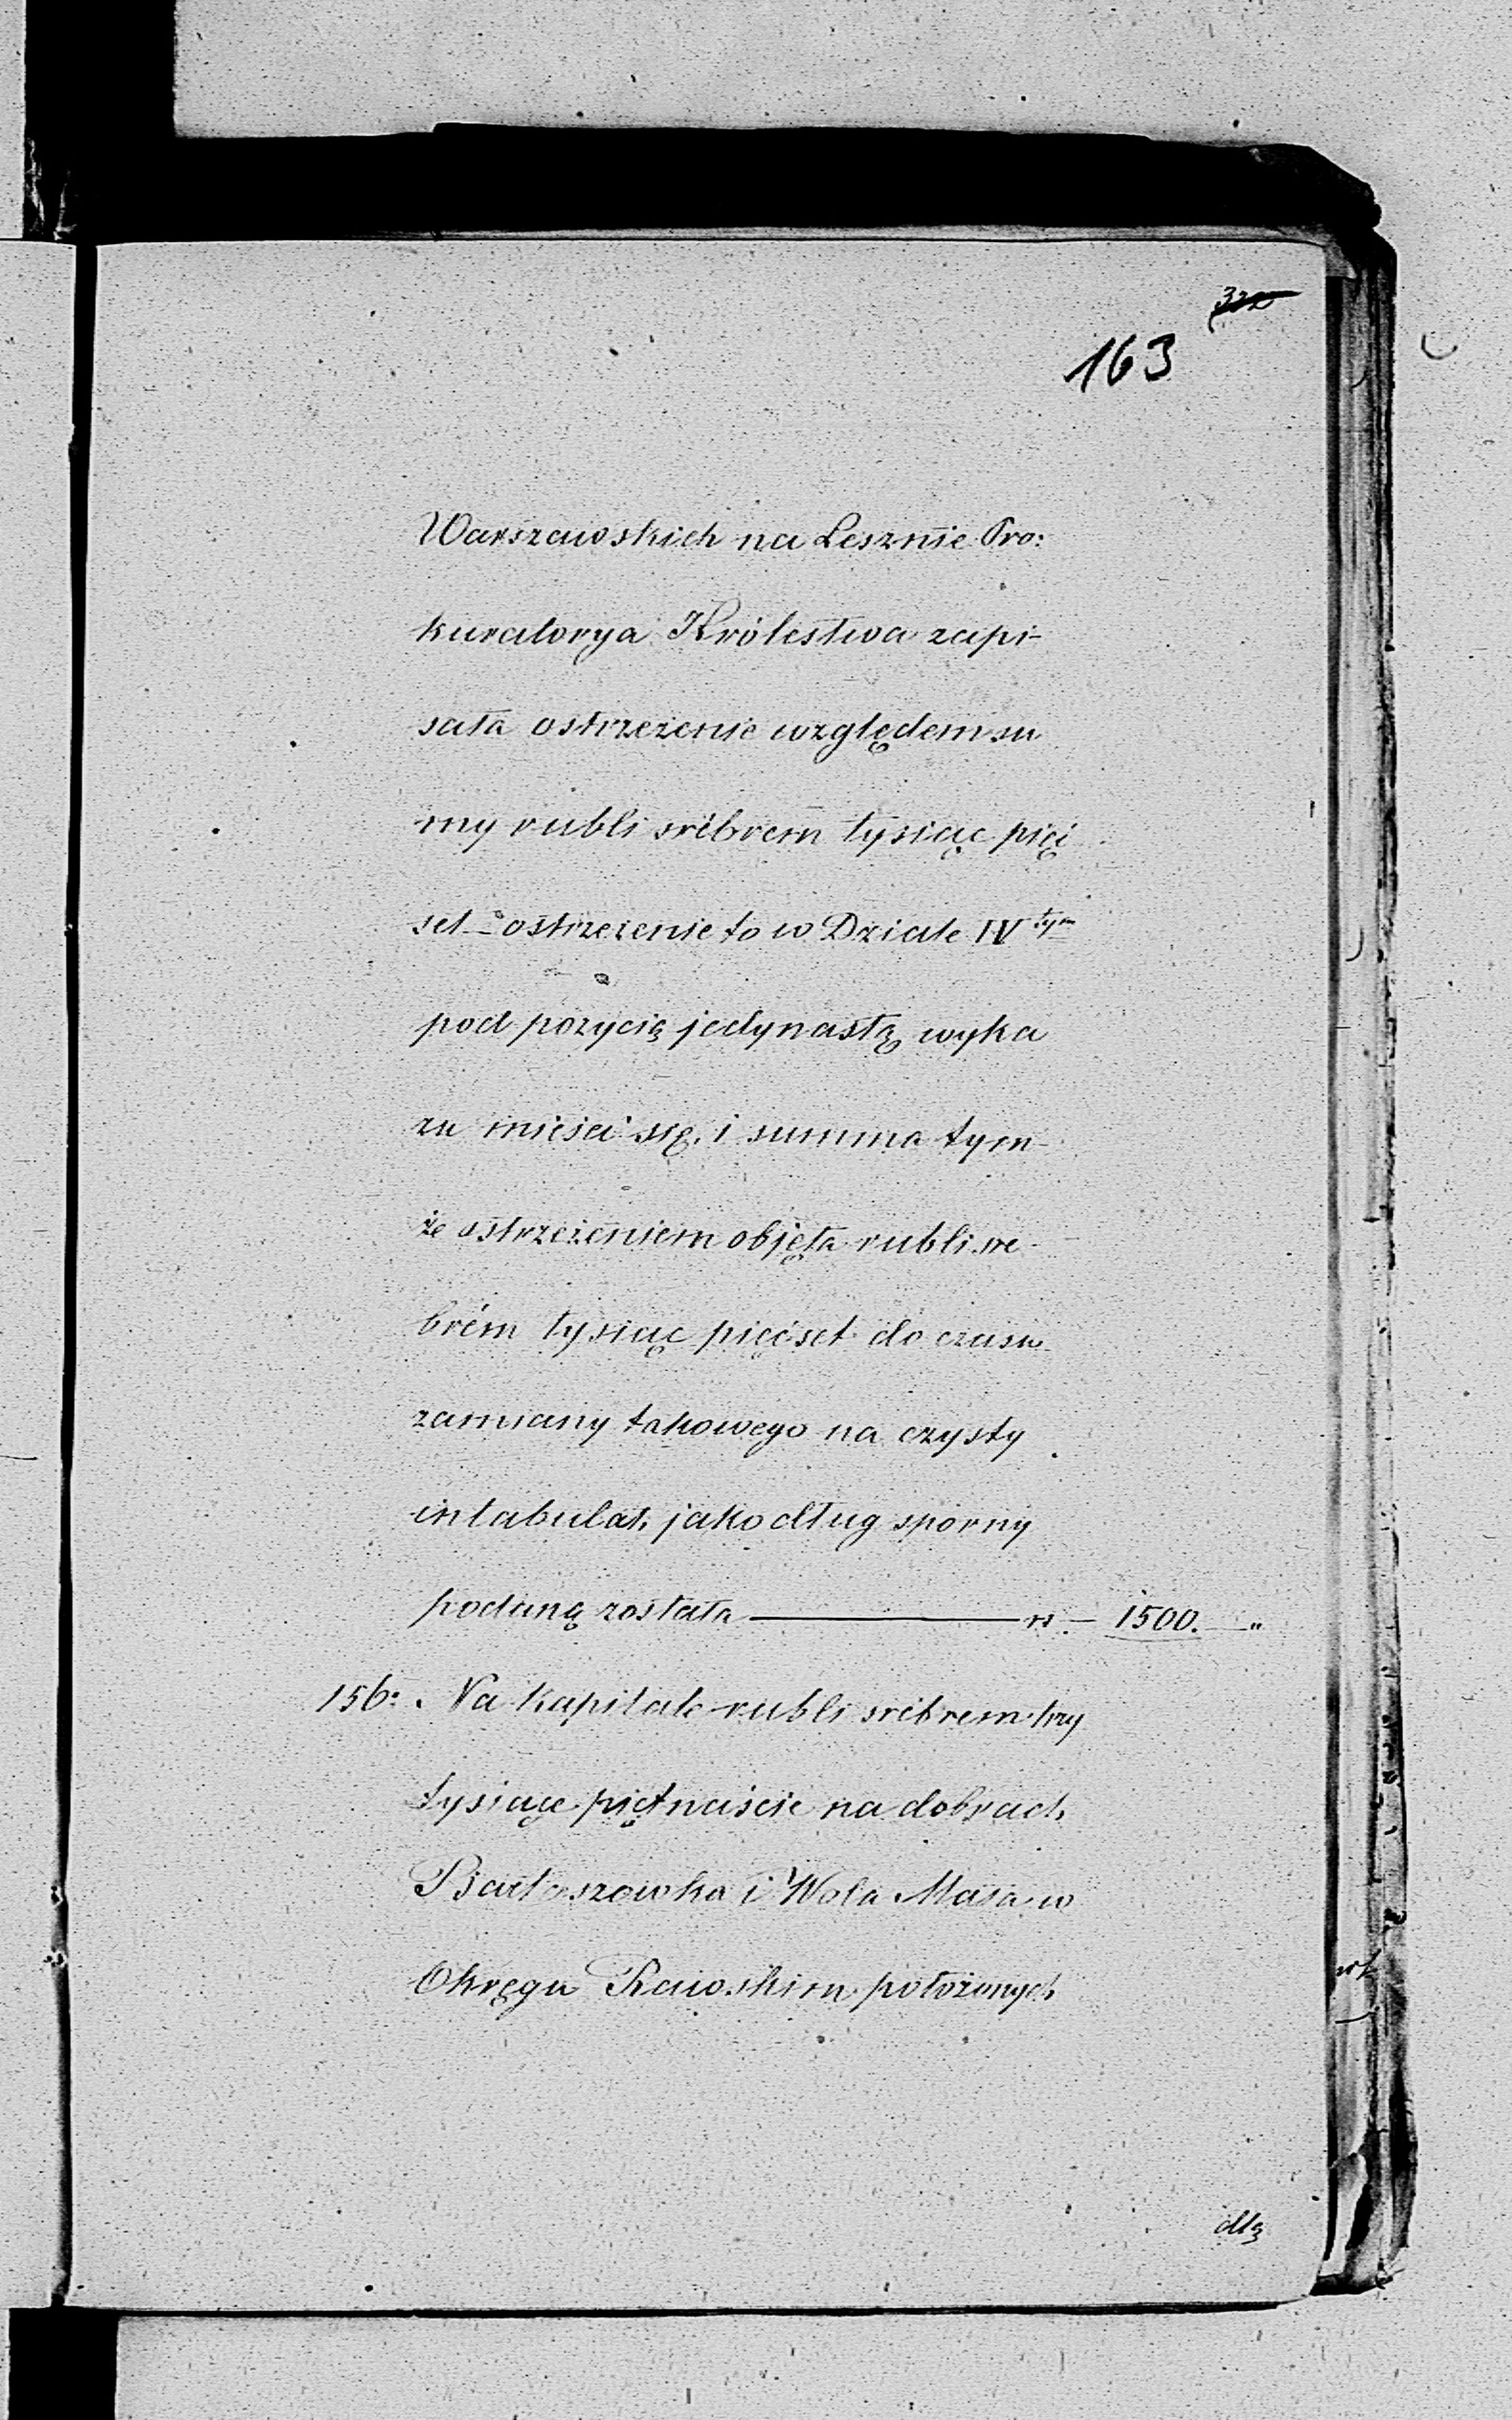 163
Warszawskich na Lesznie Pro:
kuratorya Królestwa zapi-
sała ostrzeżenie względem su
my rubli srébrem tysiąc pięć
set – ostrzeżenie to w Dziale IV tym
pod pozycią jedynastą wyka
zu mieści się, i summa tym-
że ostrzeżeniem objęta rubli sre-
brém tysiąc pięćset do czasu
zamiany takowego na czysty
intabulat, jako dług sporny
podaną została — rs. – 1500. – „
156. Na kapitale rubli srébrem trzy
tysiące piętnaście na dobrach
Bartoszowka i Wola Mała w
Okręgu Rawskim położonych